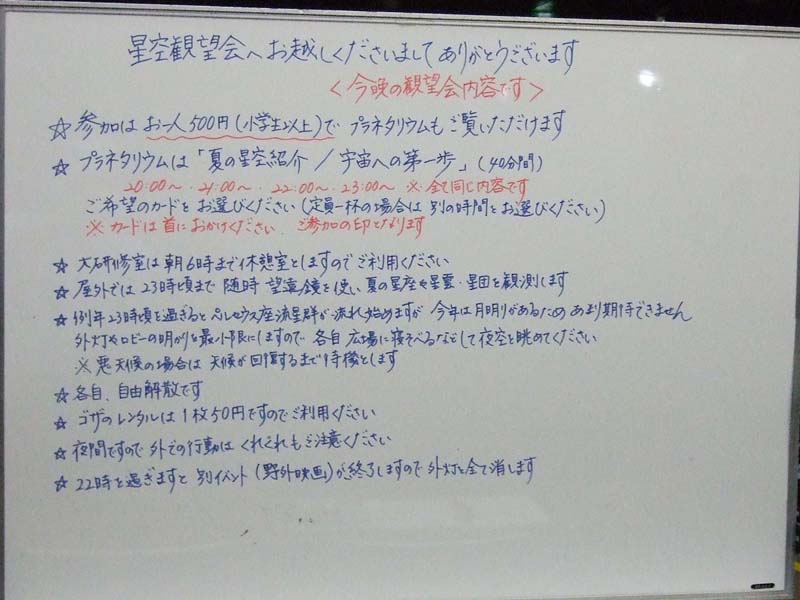 星空観望会へお越しくださいましてありがとうございます
<今晩の観望会内容です>
☆ 参加は お一人500円(小学生以上)で プラネタリウムもご覧いただけます
☆ プラネタリウムは「夏の星空紹介 / 宇宙への第一歩」(40分間)
20:00~ ・ 21:00~ ・ 22:00~ ・ 23:00~ ※ 全て同じ内容です
ご希望のカードをお選びください(定員一杯の場合は 別の時間をお選びください)
※ カードは首におかけください ご参加の印となります
☆ 大研修室は朝6時まで休憩室としますのでご利用ください
☆ 屋外では23時頃まで 随時 望遠鏡を使い 夏の星座や星雲・星団を観測します
☆ 例年23時頃を過ぎるとペルセウス座流星群が流れ始めますが 今年は月明りがあるため あまり期待できません
外灯やロビーの明かりを最小限にしますので 各自 広場に寝そべるなどして夜空を眺めてください
※ 悪天候の場合は 天候が回復するまで待機とします
☆ 各自、自由解散です
☆ ゴザのレンタルは1枚50円ですのでご利用ください
☆ 夜間ですので 外での行動は くれぐれもご注意ください
☆ 22時を過ぎますと 別イベント(野外映画)が終了しますので 外灯を全て消します